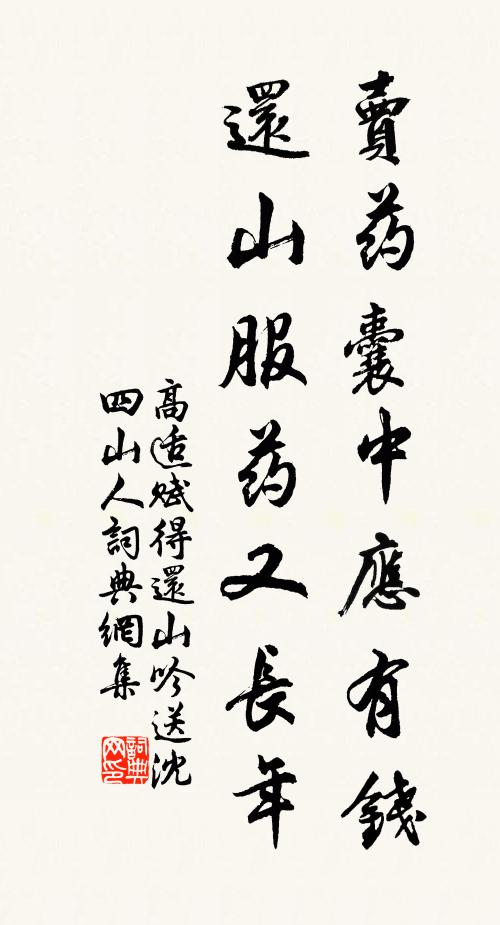 賣药囊中應有錢
還山服药又長年
高适赋得還山吟送沈
四山人詞典網集
詞典
网印